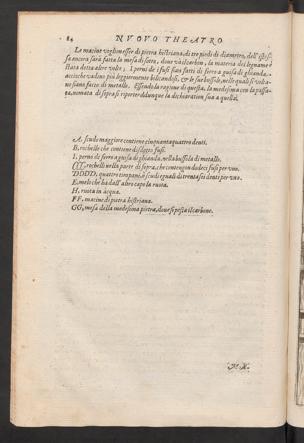 84 NVOVO THEATRO
Le macine vogliono esser di pietra histriana, di tre piedi di diametro, dell'istes-
sa ancora sarà fatta la mesa di sotto, doue và il carbon, la materia del legname è
stata detta altre volte; I perni de i fusi sian fatti di ferro a guisa di ghianda,
acciochè vadino più leggiermente bilicandosi, & le sue bussole, nelle quali si volta-
no siano fatte di metallo. Essendo la ragione di questa, la medesima con la passa-
ta, nomata di sopra si riporterà dunque la dichiaration sua a quella.
A, scudo maggiore contiene cinquantaquattro denti.
B, rochelle che contiene diciotto fusi.
I, perni de ferro a guisa di ghianda, nella bussola di metallo.
CC, rochelli nella parte di sopra, che contengon dodeci fusi per vno.
DDDD, quattro timpani, ò scudi eguali di trentasei denti per vno.
E, melo che hà dall'altro capo la ruota.
H, ruota in acqua.
FF, macine di pietra histriana.
GG, mesa della medesima pietra, doue si pista il carbone.